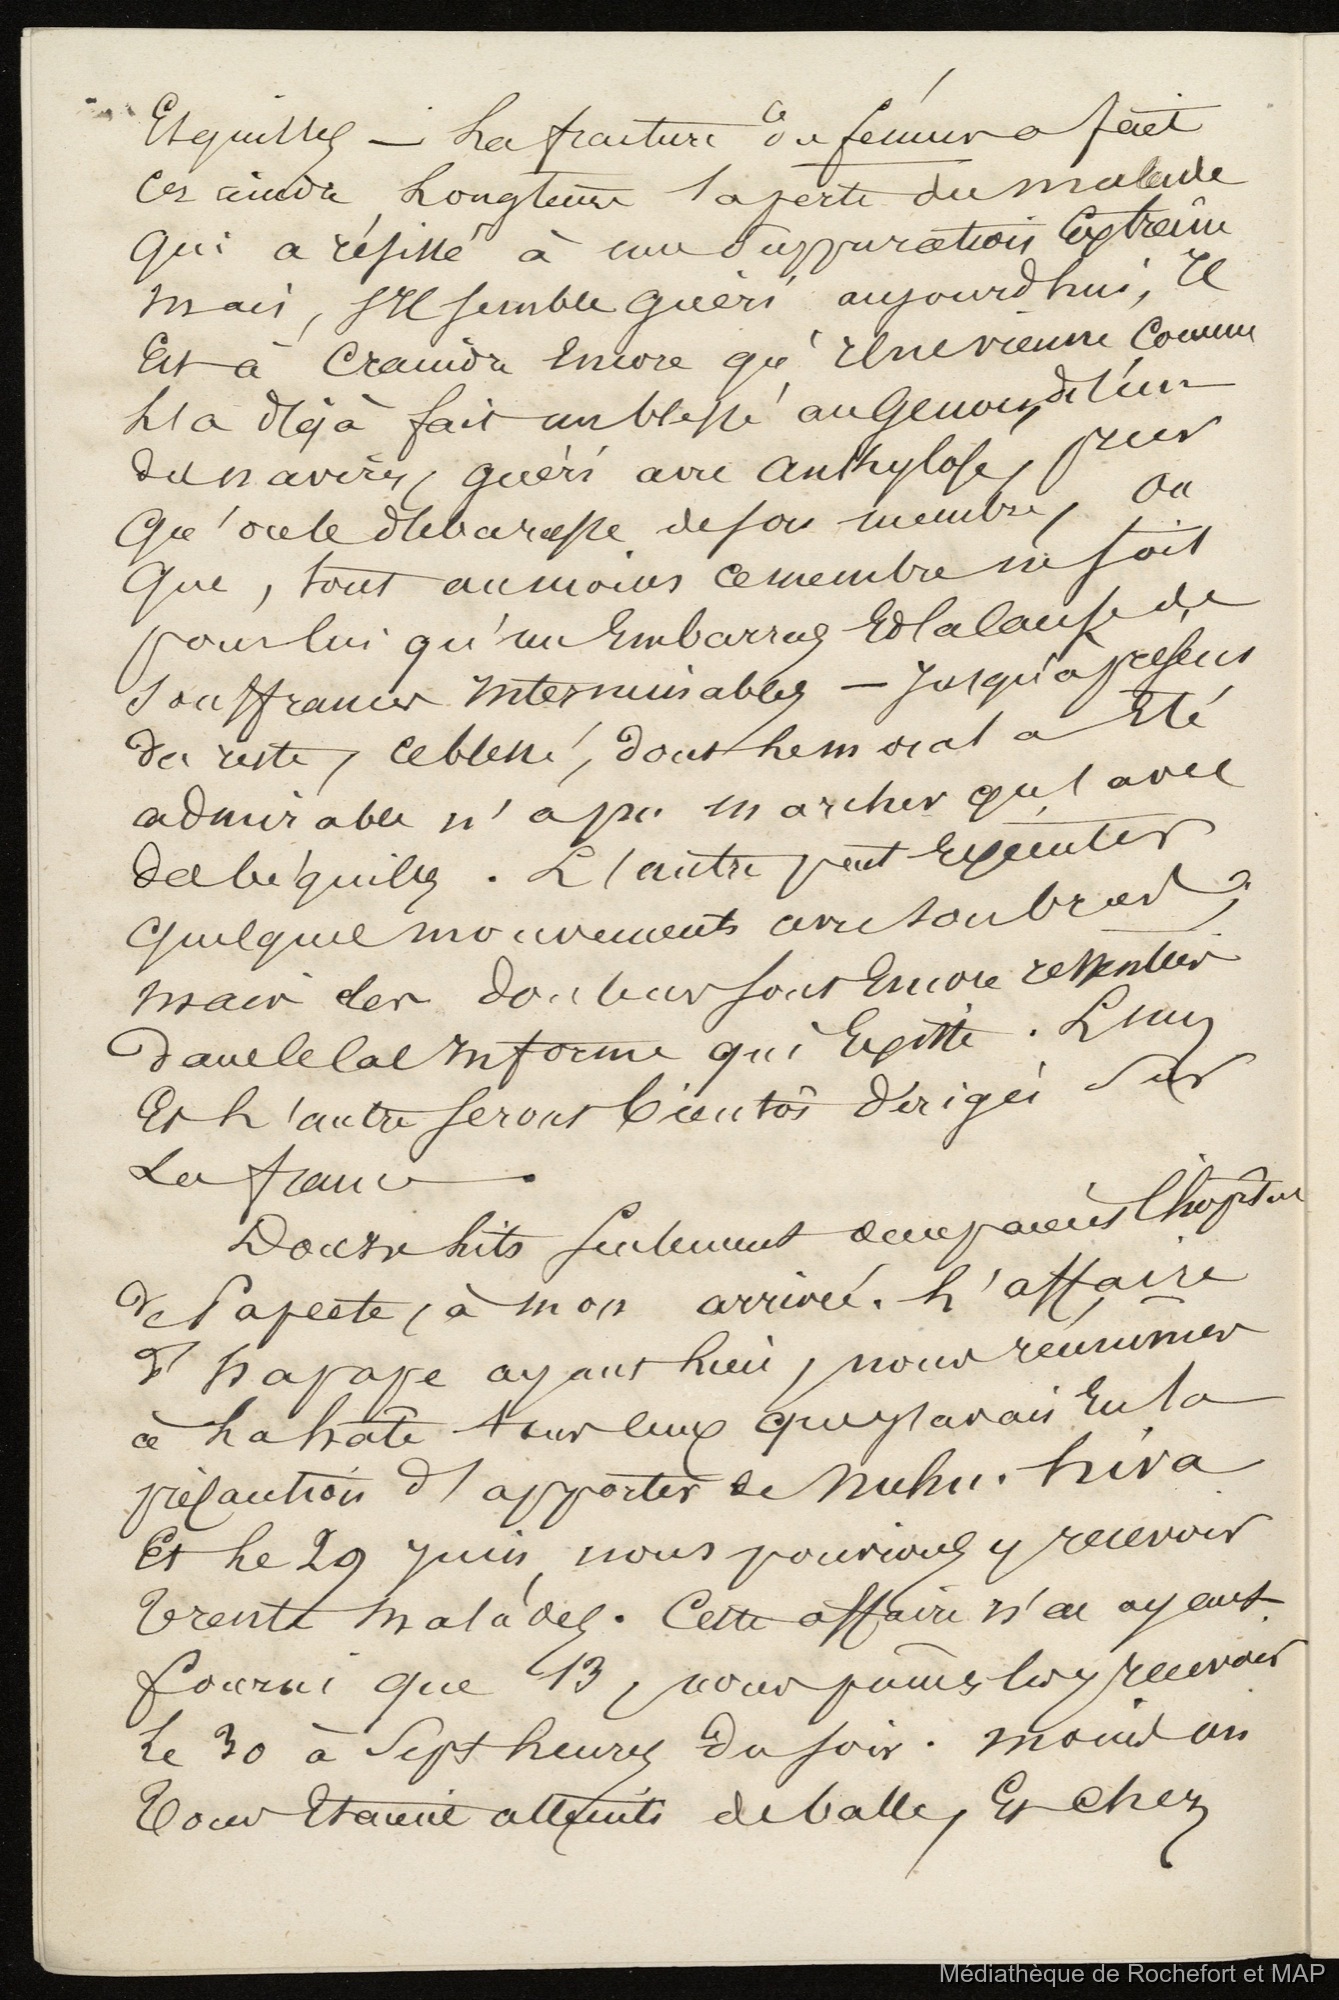 Esquilles — La fracture du fémur a fait
craindre longtems la perte du malade
qui a résisté à une suppuration extrême
mais, s'il semble guéri aujourd'hui, Il
Est à craindre Encore qu'il ne vienne comme
L'a déjà fait un blessé au genou, de l'un
des navires, guéri avec ankylose, prier
Qu'on le débarasse de son membre, ou
Que, tout au moins ce membre ne soit
pour lui qu'un Embarras Et la cause de
Souffrances Interminables — Jusqu'à présent
du reste, ce blessé, dont le moral a Eté
admirable n'a pu marcher qu'avec
des béquilles. L'autre peut Exécuter
quelques mouvements avec son bras;
mais des douleurs sont Encore ressenties
dans le cal Informe qui Existe. L'un
Et L'autre seront bientôt dirigés sur
La france.
Douze lits seulement occupaient l'hôpital
de Papeete, à mon arrivée. L'affaire
d'Hapape ayant lieu, nous réunimes
à La hâte tous ceux que j'avais Eu la
précaution d'apporter de Nuhu-hiva
Et Le 29 juin, nous pouvions y recevoir
trente malades. Cette affaire n'en ayant
fourni que 13, nous pûmes les y recevoir
Le 30 à Sept heures du soir. moins un
tous Etaient atteints de balle, Et chez
Médiathèque de Rochefort et MAP